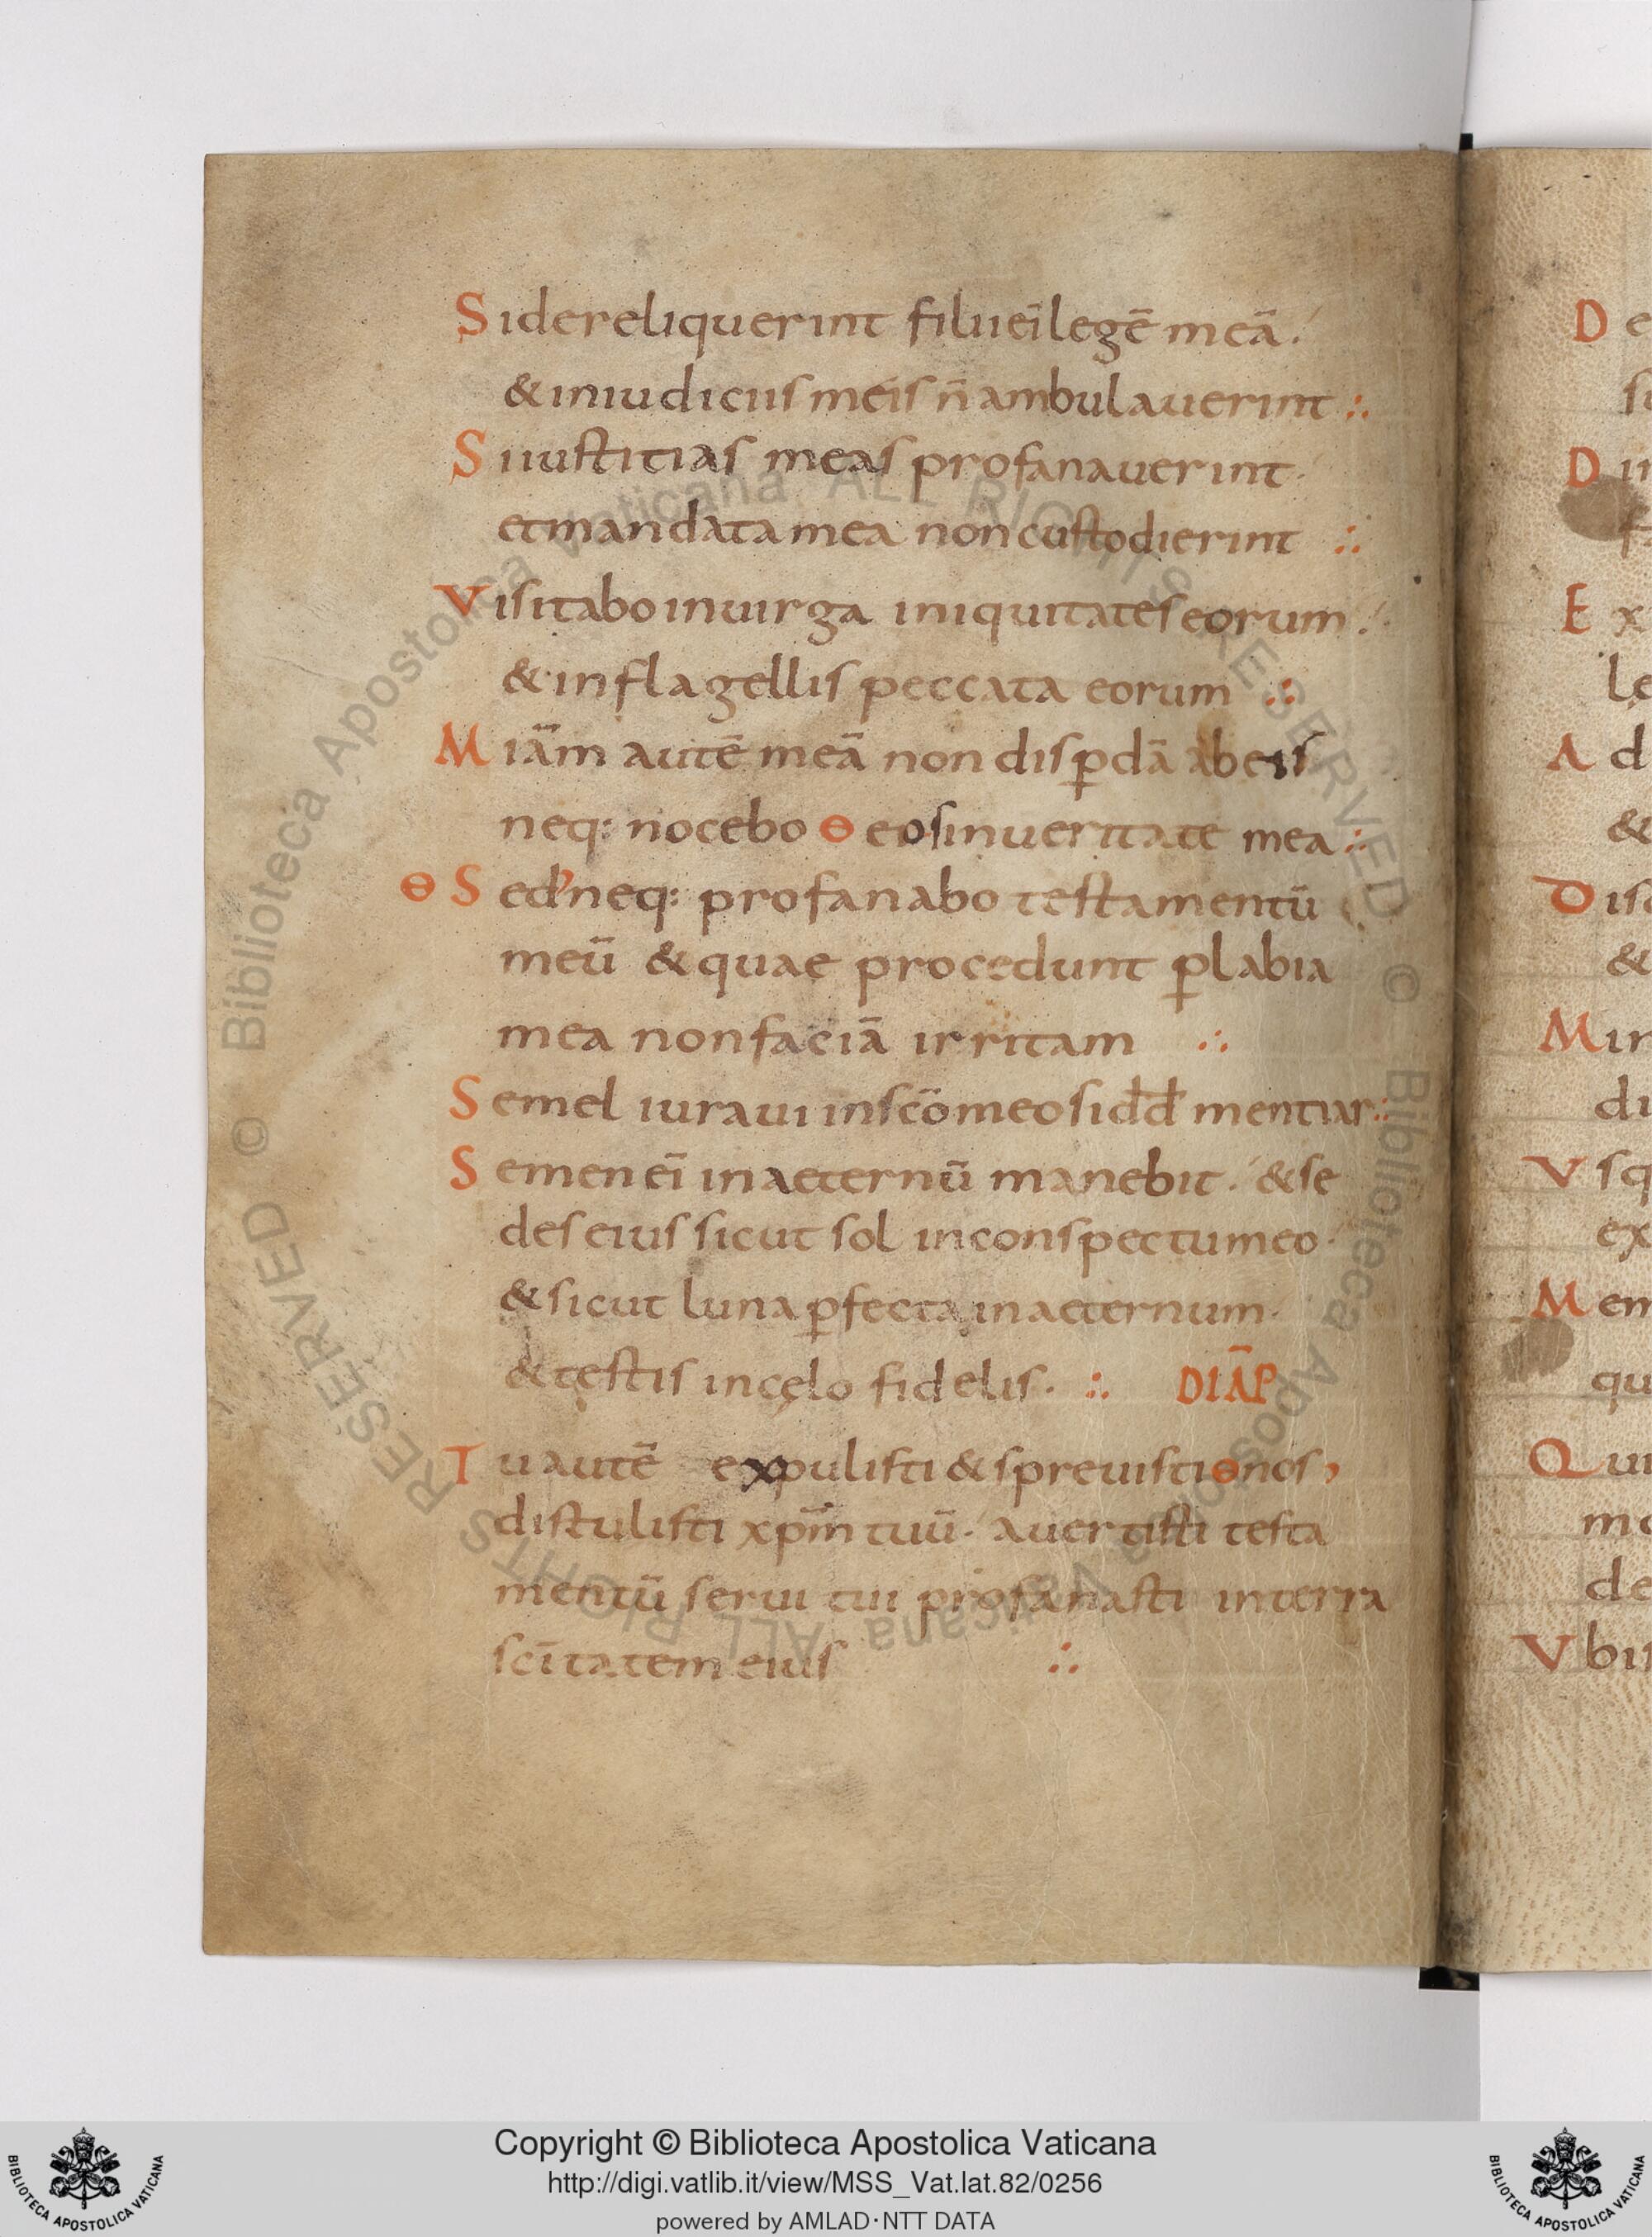 Sidereliquerint filii ei̅ legē meā
& iniudiciis meis n̄ ambulauerint ∴
Siiustitias meas profanauerint·
etmandatamea noncustodierint ∴
Visitaboinuirga iniquitateseorum
& inflagellis peccata eorum ∴
Miam̄ autē meā non disꝑdā abeis
neq: nocebo ɵ eosinueritate mea ∴
ɵ Sed neq: profanabo testamentū
meū & quae procedunt ꝑlabia
mea nonfaciā irritam ∴
Semel iuraui insc̄omeosidd̄ mentiar ∴
Semen ei̅ inaeternū manebit· & se
des eius sicut sol inconspectumeo·
& sicut luna ꝑfecta inaeternum·
& testis incęlo fidelis· ∴ DIĀP
Tu autē expulisti & spreuistiɵnos,
distulisti xpm̄ tuū· auertisti testa
mentū serui tui profanasti interra
sc̄itatem eius ∴
D e
D ii
E x
le
A d
&
D isc
&
M ir
di
V sq
ex
M em
qu
Q ui
mo
de
V bis
Copyright © Biblioteca Apostolica Vaticana
http://digi.vatlib.it/view/MSS_Vat.lat.82/0256
powered by AMLAD·NTT DATA
BIBLIOTECA APOSTOLICA VATICANA
BIBLIOTECA APOSTOLICA VATICANA
© Biblioteca Apostolica Vaticana ALL RIGHTS RESERVED © Biblioteca Apostolica Vaticana ALL RIGHTS RESERVED